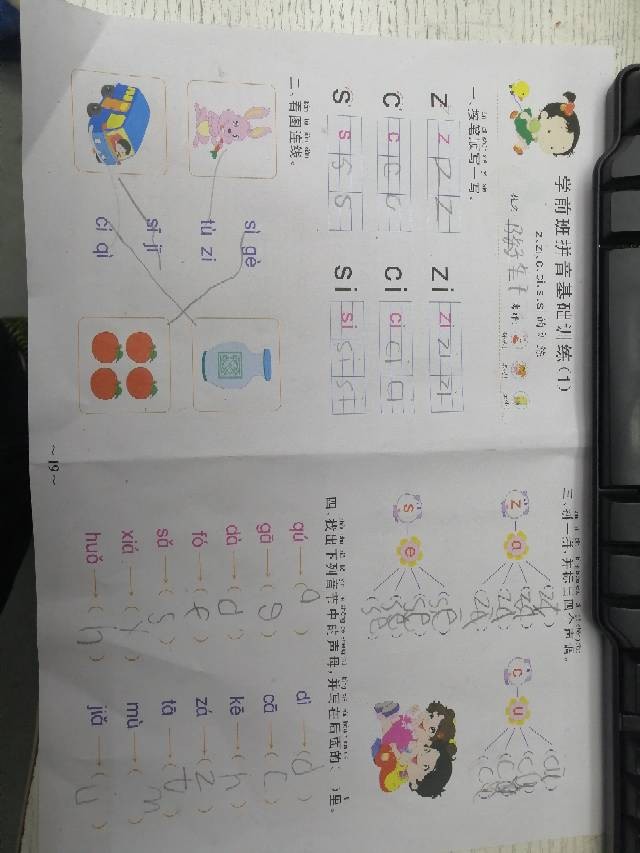 学前班拼音基础训练(1)
z.zi.c.ci.s.si的训练
一、按笔顺写一写。
z z z z
zi zi zi zi
c c c c
ci ci ci ci
s s s s
si si si si
二、看图连线。
sì gè
tù zi
sī jī
cí qì
~19~
三、拼一拼，并标三四大声调。
z a
c u
s e
四、找出下列音节中的声母，并写在后面的( )里。
qú → ( q )
gā → ( g )
dá → ( d )
fó → ( f )
sǎ → ( s )
xiá → ( )
huǒ → ( h )
dì → ( d )
cā → ( c )
kē → ( )
zá → ( z )
tǎ → ( t )
mù → ( m )
jiǎ → ( )